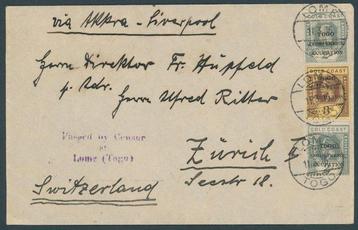 via Akkra - Liverpool
Herrn Direktor Fr. Hupfeld
p. Adr. Herrn Alfred Ritter
Zürich II
Seestr 18.
Switzerland
Passed by Censor
at
Lome (Togo)
LOME
GOLD COAST
TOGO
ANGLO-FRENCH
OCCUPATION
GOLD COAST
TOGO
OCCUPATION
3
GOLD COAST
TOGO
OCCUPATION
LOME
TOGO